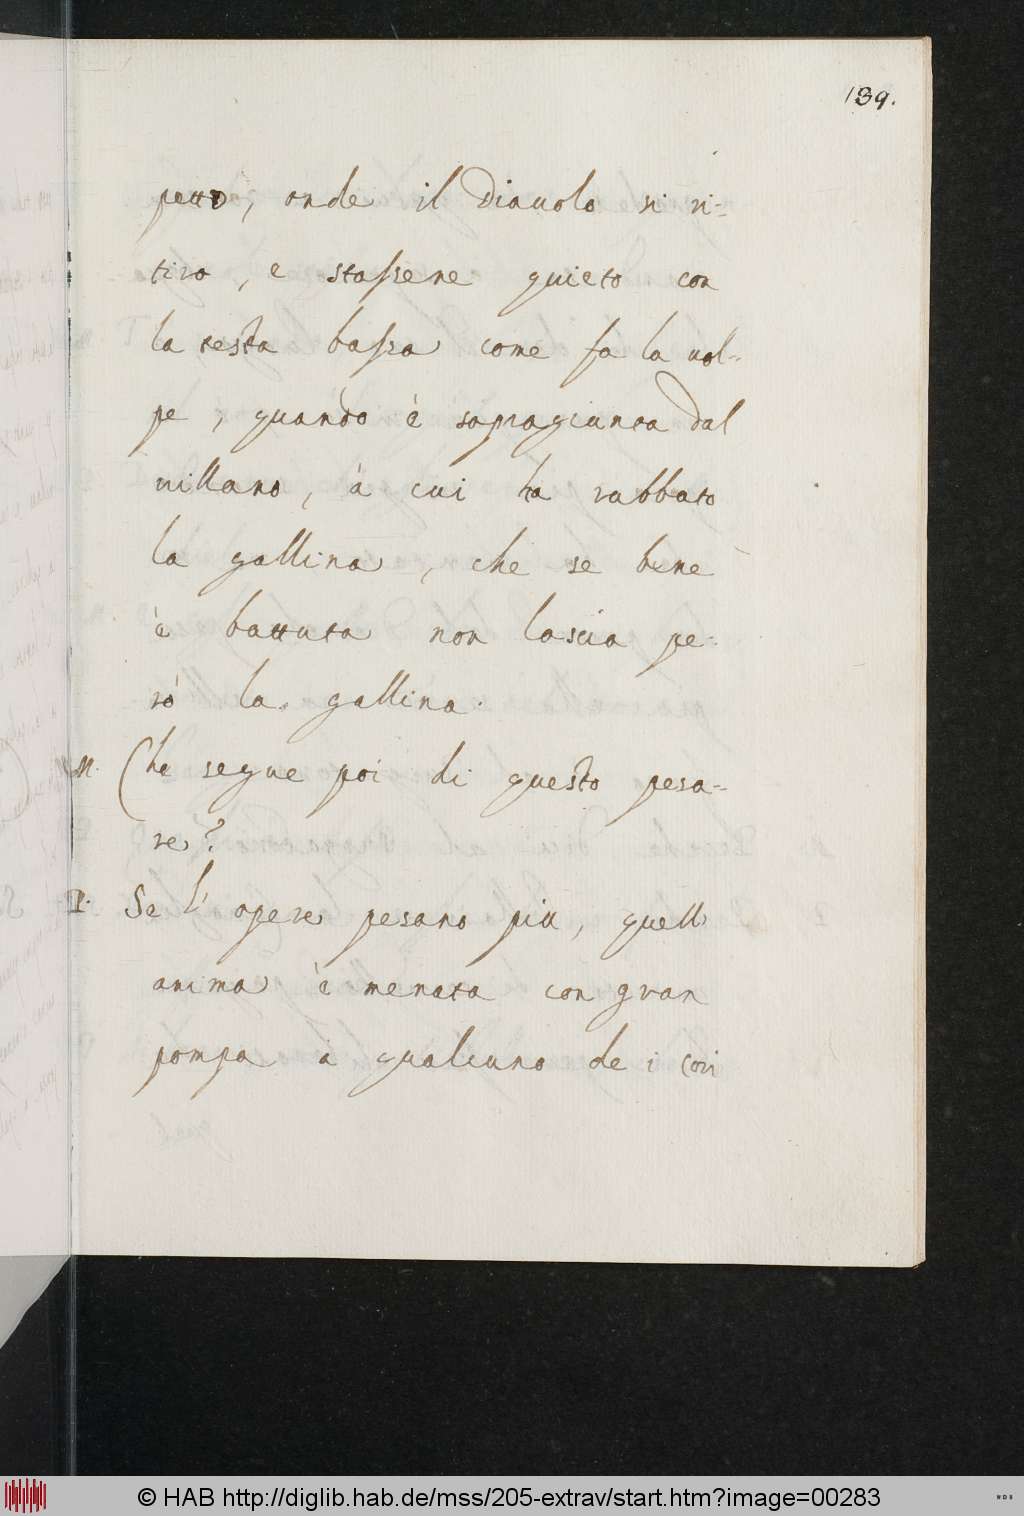 139.
petto, onde il Diauolo si ri-
tira, e stassene quieto con
la testa bassa come fa la uol-
pe, quando è sopragiunta dal
uillano, à cui ha rubbato
la gallina, che se bene
è battuta non lascia pe-
rò la gallina.
M. Che segue poi di questo pesa-
re?
P. Se l'opere pesano più, quell
anima è menata con gran
pompa à qualcuno de i cori
© HAB http://diglib.hab.de/mss/205-extrav/start.htm?image=00283